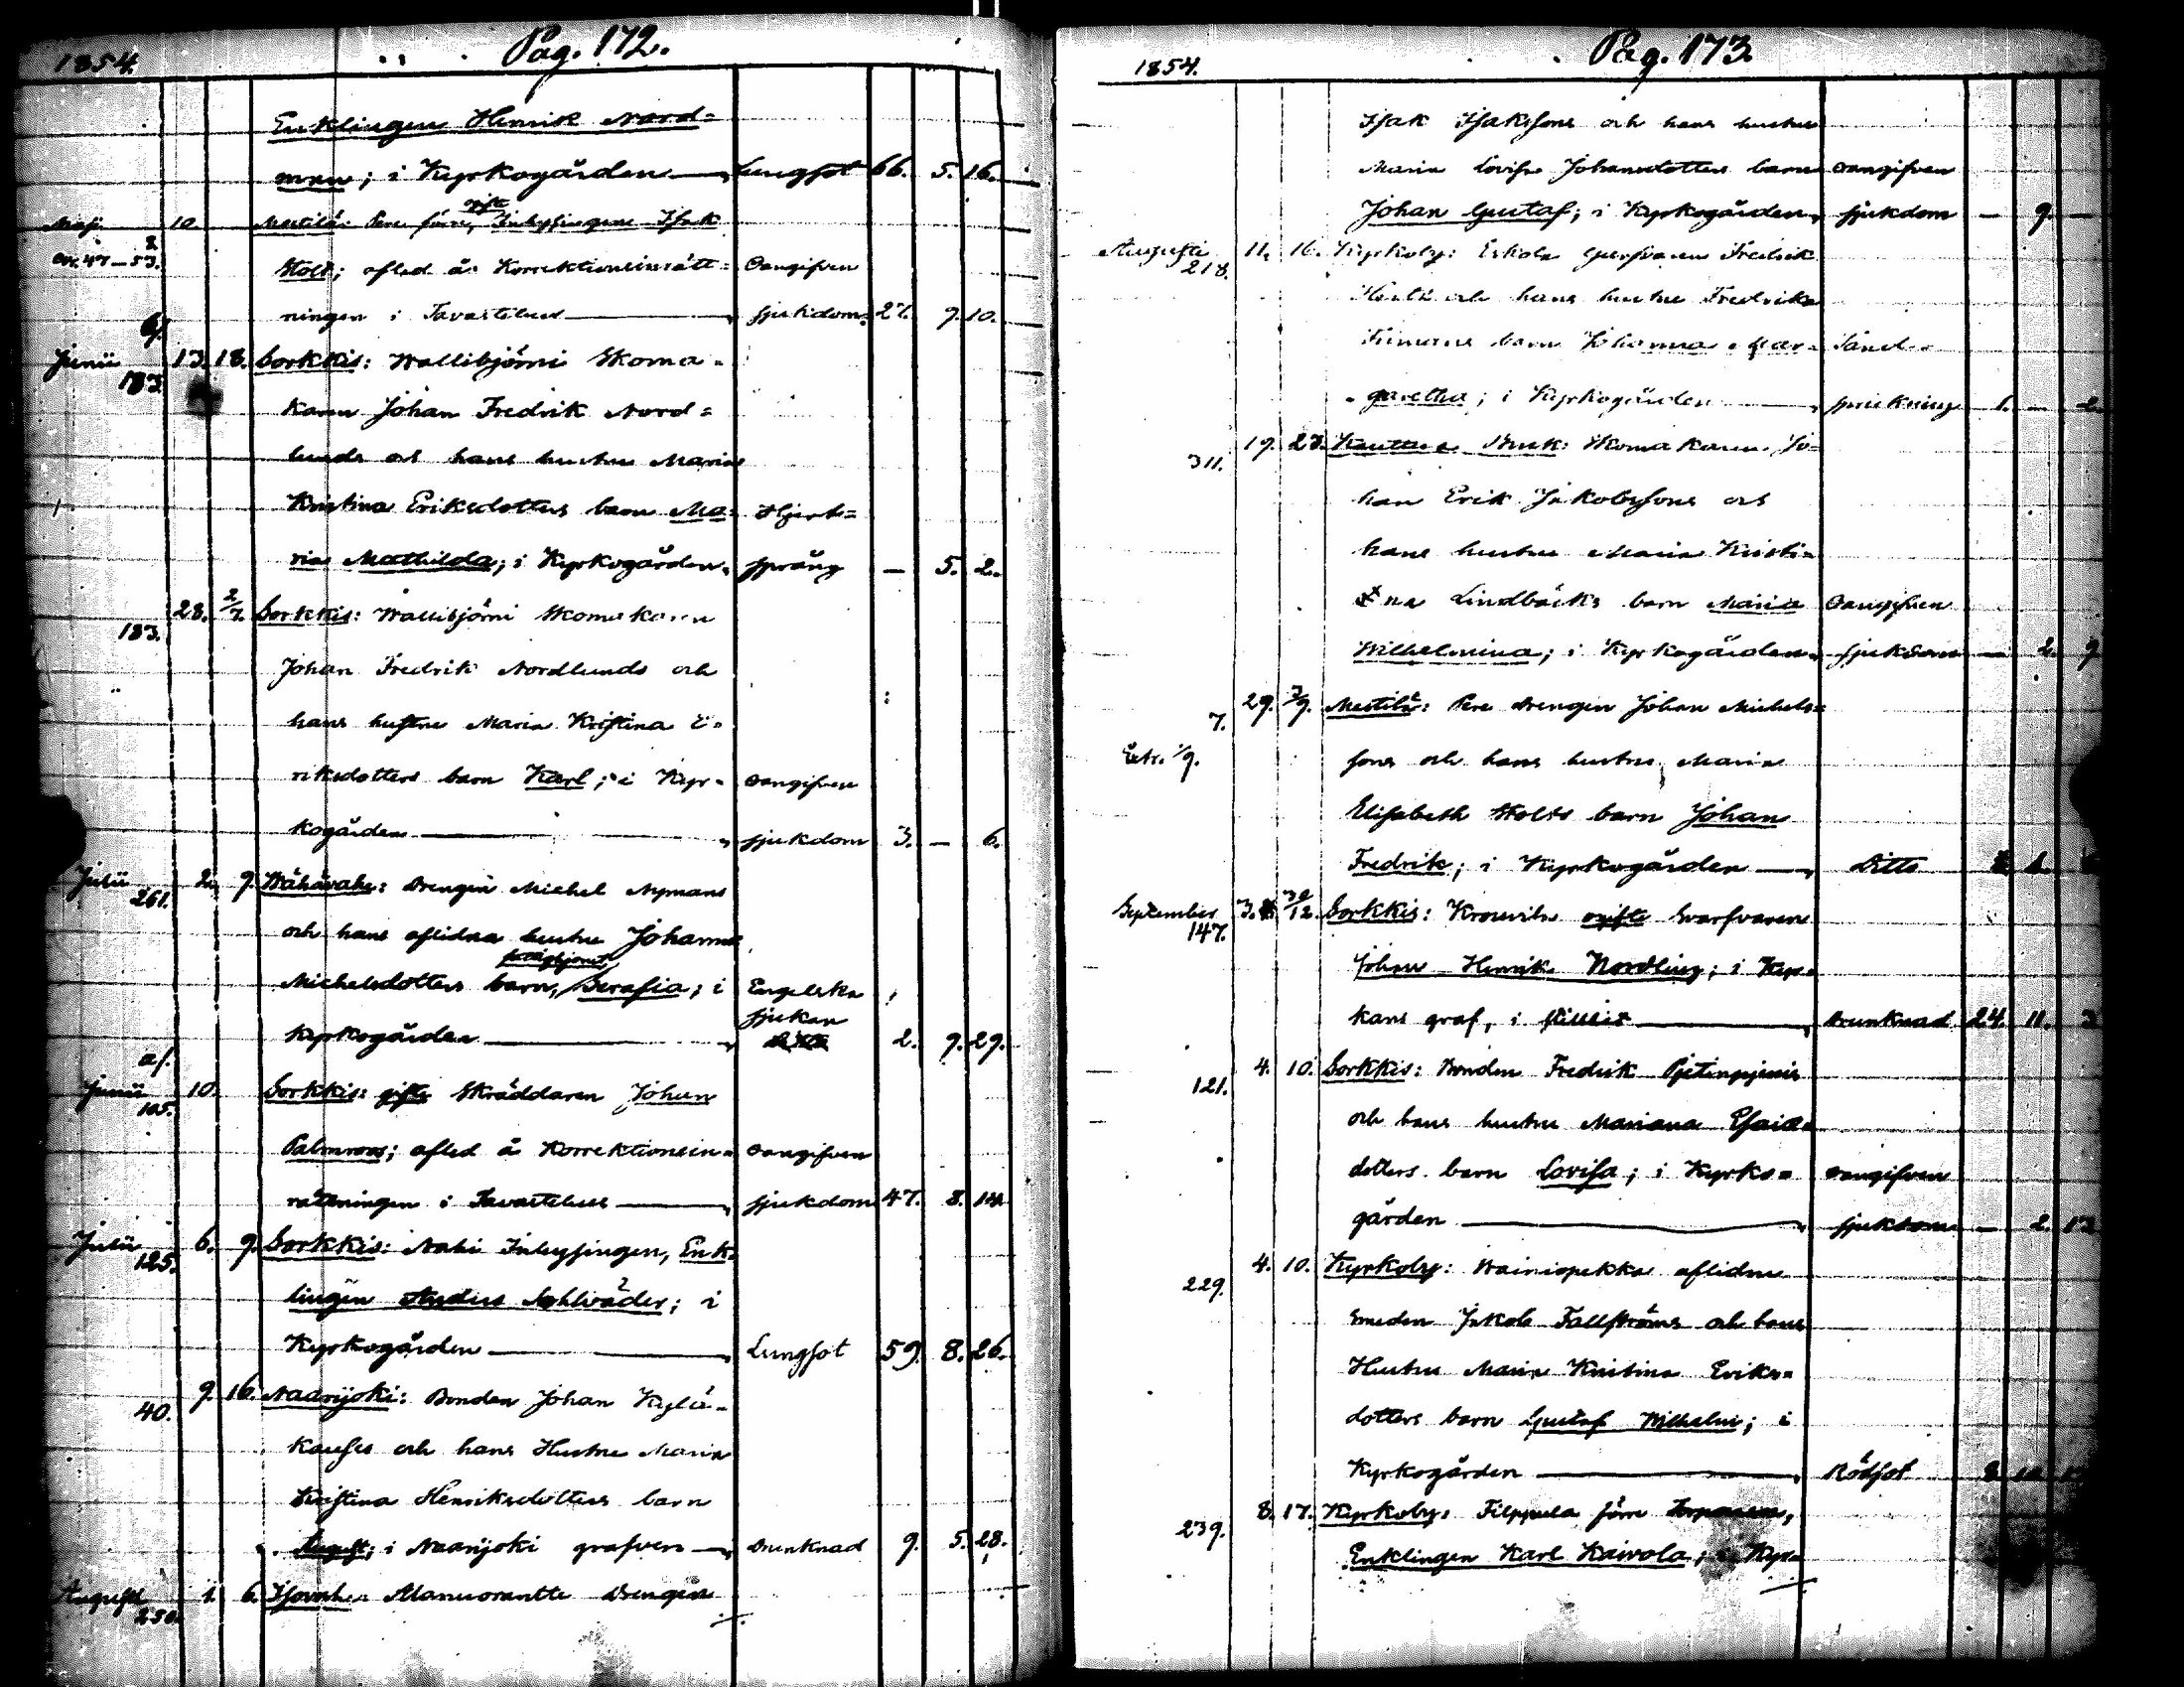 1854. Pag. 172.
Enklingen Henrik Nord=
man; i Kyrkogården Lungsot 66. 5. 16.
Maji 10. Mestilä: Pere förre, gifte Inhysingen Isak
Stolt; afled å Korrektionsinrätt= Oangifven
ningen i Tavastehus sjukdom 27. 9. 10.
Junii 13. 18. Sorkkis: Wallibjörni Skoma=
183.
karen Johan Fredrik Nord=
lunds och hans hustru Maria
Kristina Eriksdotters barn Ma= Hjert=
ria Mathilda; i Kyrkogården språng — 5. 2.
183. 28. 2/7. Sorkkis: Wallibjörni Skomakaren
Johan Fredrik Nordlunds och
hans hustru Maria Kristina E=
riksdotters barn Karl; i Kyr= oangifven
kogården sjukdom 3. — 6.
Julii 2. 9. Drengen Michel Nymans
261.
och hans aflidna hustru Johanna
Michelsdotters barn, Serafia; i Engelska
sjukan
Kyrkogården 2. 9. 29.
af.
Junii 10. Sorkkis: gifte Skräddaren Johan
105.
Palmroos; afled å Korrektionsin= oangifven
rättningen i Tavastehus sjukdom 47. 8. 14.
Julii 6. 9. Sorkkis: Nahi Inhysingen, Enk=
125.
lingen Anders; i
Kyrkogården Lungsot 59. 8. 26.
40. 9. 16. Naarijoki: Bonden Johan Kylä=
och hans Hustru Maria
Kristina Henriksdotters barn
August; i Naarijoki grafven Drunknad 9. 5. 28.
Augusti 1. 6. Drengen
250.
1854. Pag. 173.
Isak Isakssons och hans hustru
Maria Lovisa Johansdotters barn oangifven
Johan Gustaf; i Kyrkogården sjukdom — 9. —
Augusti 11. 16. Kyrkoby: Eskola Fredrik
218.
och hans hustru Fredrika
barn Johanna Mar=
garetha; i Kyrkogården 1. — 2.
311. 19. 27. Kauttua Bruk: Skomakaren Jo=
han Erik Jakobssons och
hans hustru Maria Kristi=
na Lindbäcks barn Maria Oangifven
Wilhelmina; i Kyrkogården sjukdom — 2. 9
7. 29. 3/9. Mestilä: Pere Drengen Johan Michels=
sons och hans hustrus Maria
Elisabeth Stolts barn Johan
Fredrik; i Kyrkogården Ditto
September 3. Sorkkis: gifte Svarfvaren
147.
Johan Henrik Nordling; i Kyr=
kans graf, i stillhet Drunknad 24. 11. 3
121. 4. 10. Sorkkis: Bonden Fredrik
och hans hustru Mariana Esaias
dotters barn Lovisa; i Kyrko= oangifven
gården sjukdom — 2. 13
229. 4. 10. Kyrkoby: Wainiopekka aflidne
smeden Jakob Fallströms och hans
Hustru Maria Kristina Eriks=
dotters barn Gustaf Wilhelm; i
Kyrkogården Rödsot
239. 8. 17. Kyrkoby: Filppula förre Torparen,
Enklingen Karl Kaivola; i Kyr=